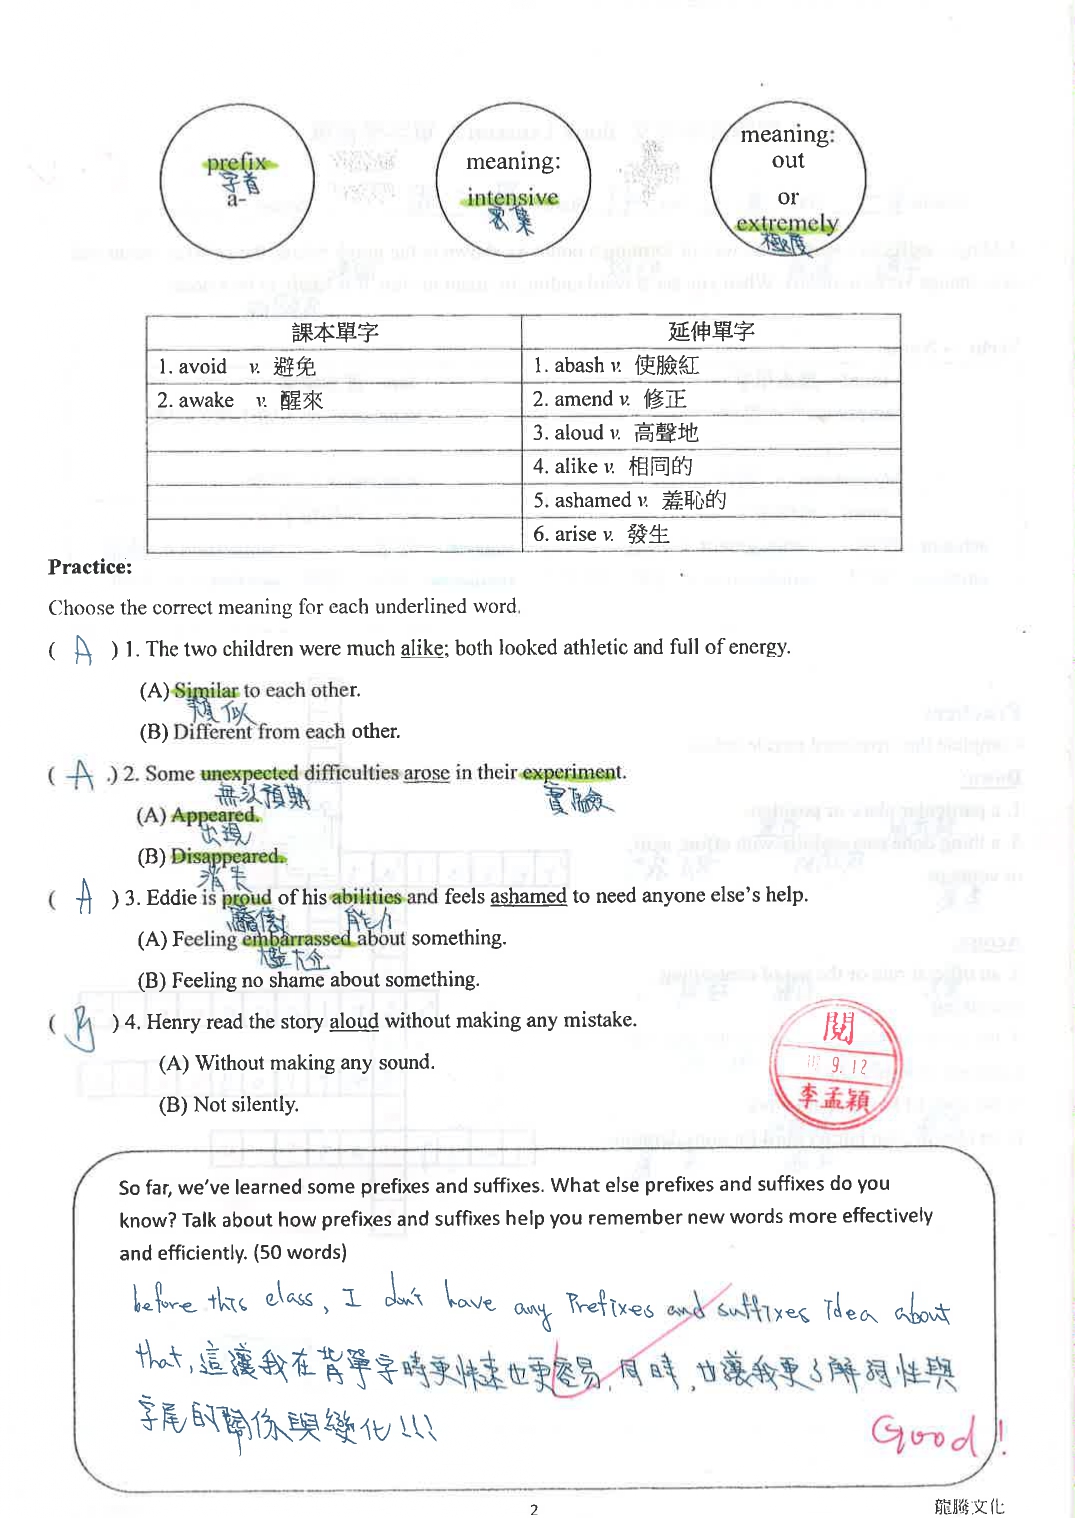 prefix
字首
a-
meaning:
intensive
密集
meaning:
out
or
extremely
極度
課本單字 延伸單字
1. avoid v. 避免 1. abash v. 使臉紅
2. awake v. 醒來 2. amend v. 修正
3. aloud v. 高聲地
4. alike v. 相同的
5. ashamed v. 羞恥的
6. arise v. 發生
Practice:
Choose the correct meaning for each underlined word.
( A ) 1. The two children were much alike; both looked athletic and full of energy.
(A) Similar to each other.
類似
(B) Different from each other.
( A ) 2. Some unexpected difficulties arose in their experiment.
無法預期 實驗
(A) Appeared.
出現
(B) Disappeared.
消失
( A ) 3. Eddie is proud of his abilities and feels ashamed to need anyone else's help.
驕傲 能力
(A) Feeling embarrassed about something.
尷尬
(B) Feeling no shame about something.
( B ) 4. Henry read the story aloud without making any mistake.
(A) Without making any sound.
(B) Not silently.
閱
9.12
李孟穎
So far, we've learned some prefixes and suffixes. What else prefixes and suffixes do you
know? Talk about how prefixes and suffixes help you remember new words more effectively
and efficiently. (50 words)
before this class, I don't have any Prefixes and suffixes idea about
that, 這讓我在背單字時更快速也更容易, 同時, 也讓我更了解詞性與
字尾的關係與變化!!!
Good!
2
龍騰文化